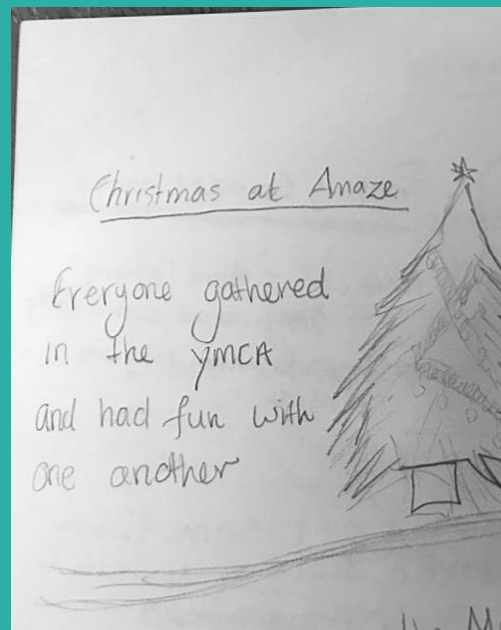 Christmas at Amaze
Everyone gathered
in the YMCA
and had fun with
one another